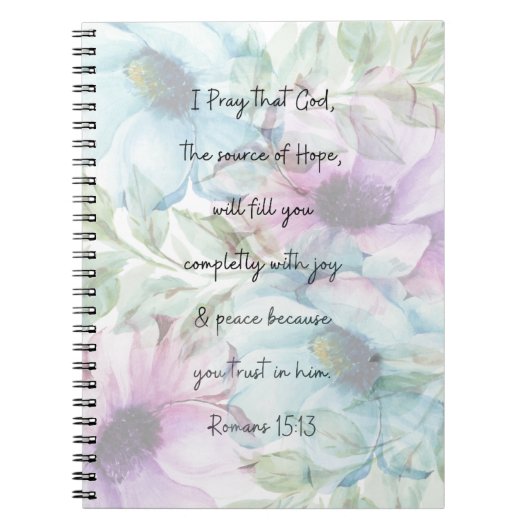 I Pray that God,
The source of Hope,
will fill you
completly with joy
& peace because
you trust in him.
Romans 15:13